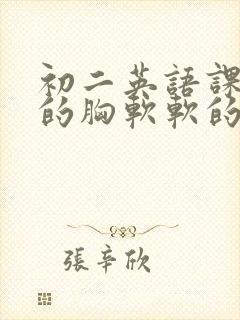 初二英語課
的胸軟軟的
張辛欣